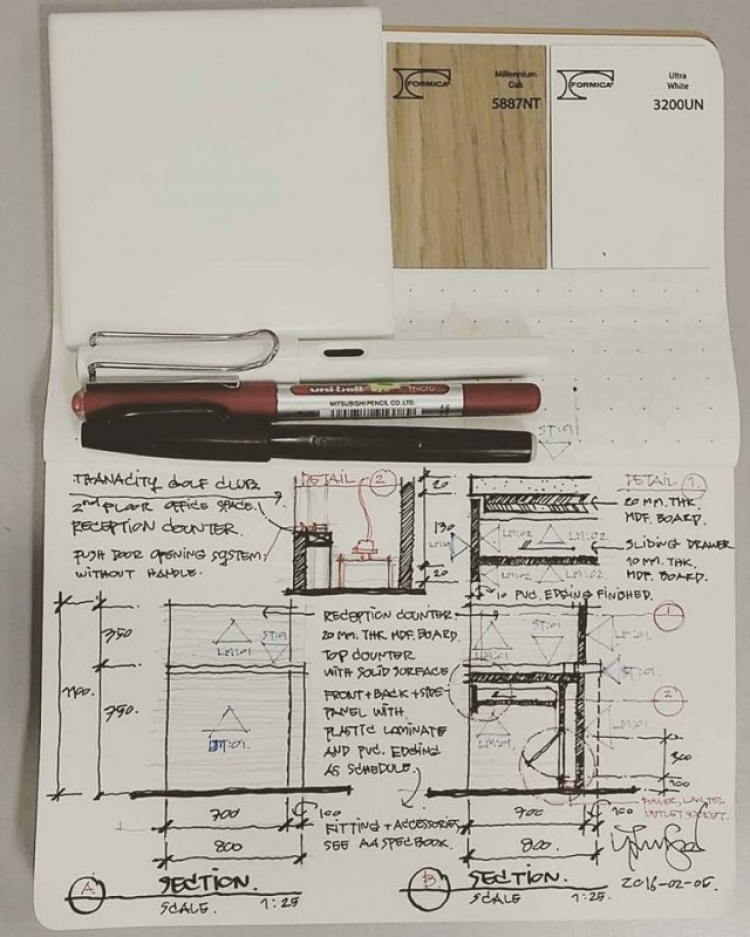 FORMICA
Millennium
Oak
5887NT
FORMICA
Ultra
White
3200UN
uni-ball eye micro
MITSUBISHI PENCIL CO. LTD.
ST:01
THANACITY GOLF CLUB.
2nd FLOOR OFFICE SPACE.
RECEPTION COUNTER.
PUSH DOOR OPENING SYSTEM
WITHOUT HANDLE.
DETAIL 2
20
130
20
DETAIL 1
20 MM. THK.
MDF. BOARD.
SLIDING DRAWER
10 MM. THK.
MDF. BOARD.
LM:02
LM:02
LM:02
LM:02
10 PVC. EDGING FINISHED.
RECEPTION COUNTER.
20 MM. THK MDF. BOARD.
TOP COUNTER
WITH SOLID SURFACE
FRONT + BACK + SIDE
PANEL WITH
PLASTIC LAMINATE
AND PVC. EDGING
AS SCHEDULE.
FITTING + ACCESSORIES
SEE A4 SPEC BOOK.
350
1100.
750.
LM:01
ST:01
700
100
800
LM:01
LM:01
ST:01
LM:01
LM:01
1
2
300
100
700
100
800.
OUTLET SOCKET.
2016-02-05.
A. SECTION.
SCALE. 1:25
B. SECTION.
SCALE 1:25.